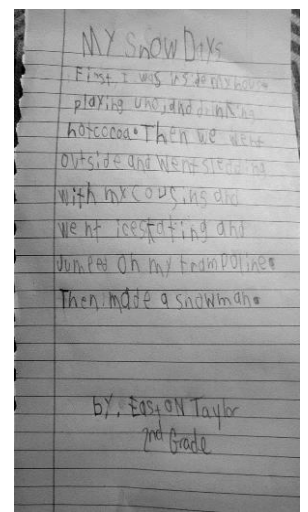 MY SNOW DAYS
First I was inside my house
playing uno, and drinking
hotcocoa. Then we went
outside and went sledding
with my cousins and
went iceskating and
Jumped on my trampoline.
Then made a snowman.
by, Easton Taylor
2nd Grade